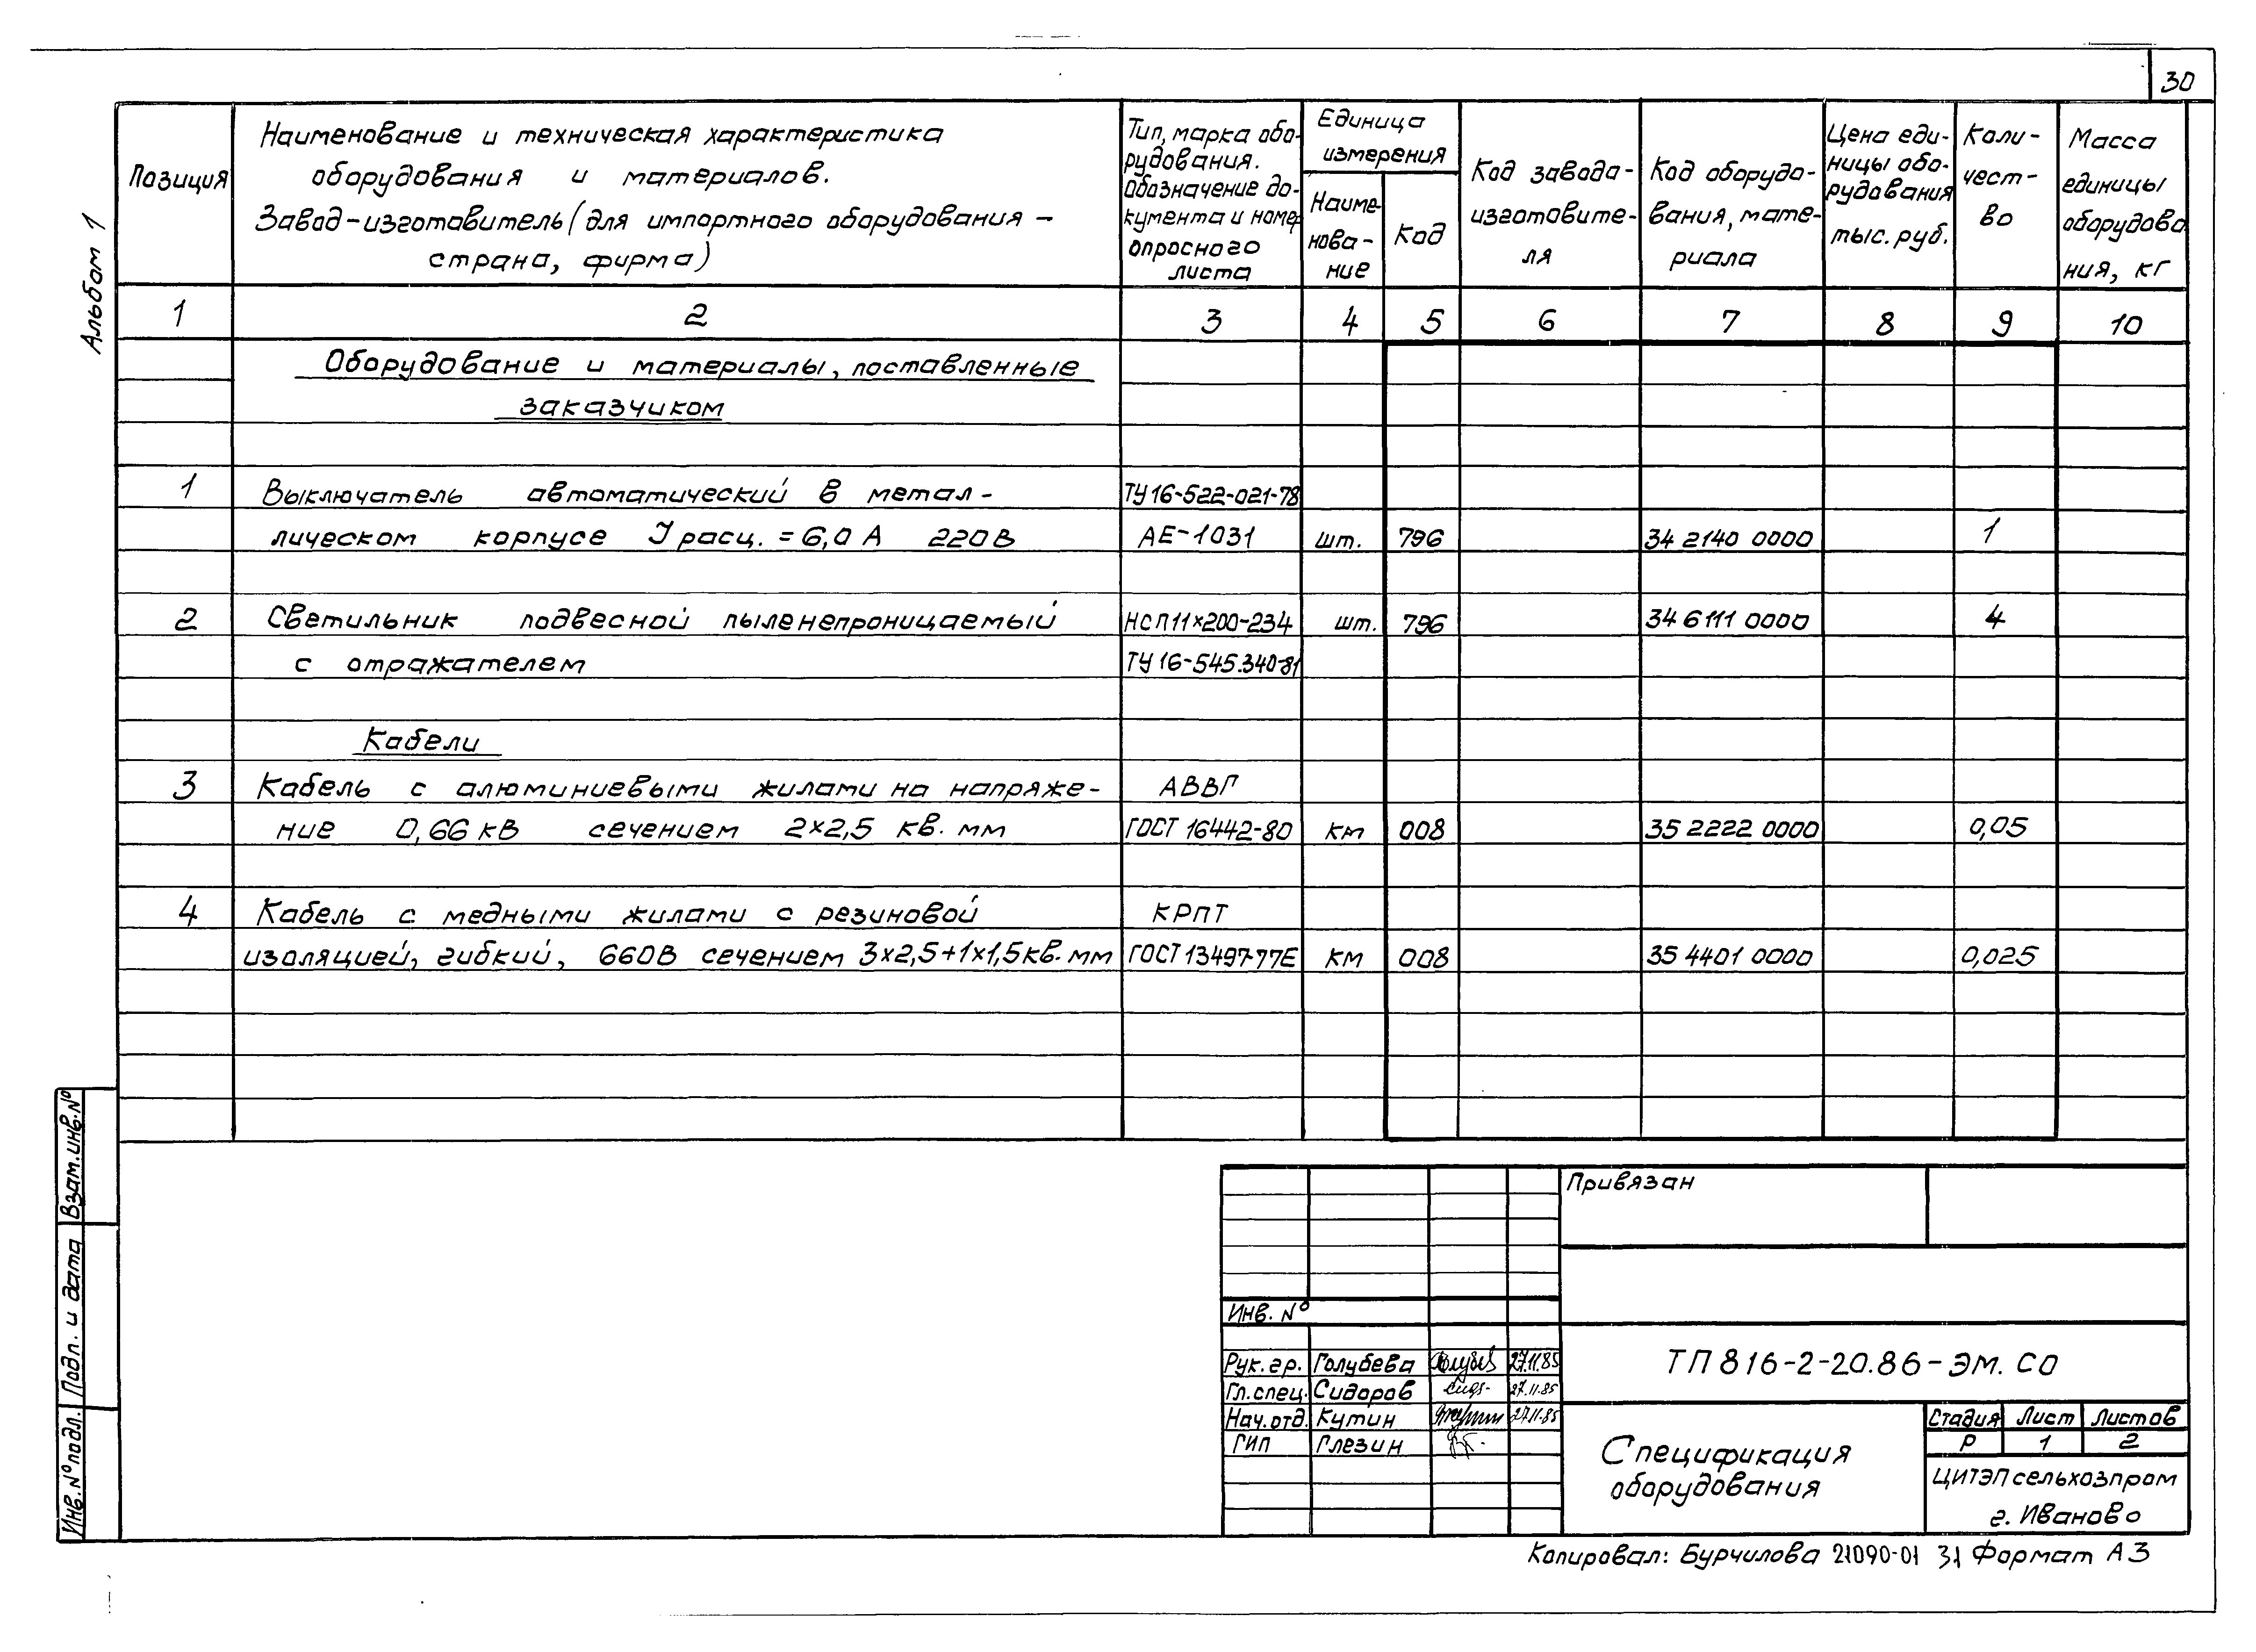 30
Альбом 1
Позиция
Наименование и техническая характеристика
оборудования и материалов.
Завод-изготовитель (для импортного оборудования –
страна, фирма)
Тип, марка обо-
рудования.
Обозначение до-
кумента и номер
опросного
листа
Единица
измерения
Наиме-
нова-
ние
Код
Код завода-
изготовите-
ля
Код оборудо-
вания, мате-
риала
Цена еди-
ницы обо-
рудования
тыс. руб.
Коли-
чест-
во
Масса
единицы
оборудова
ния, кг
1 2 3 4 5 6 7 8 9 10
Оборудование и материалы, поставленные
заказчиком
1 Выключатель автоматический в метал- ТУ 16-522-021-78
лическом корпусе Iрасц. = 6,0 А 220В АЕ-1031 шт. 796 34 2140 0000 1
2 Светильник подвесной пыленепроницаемый НСП11×200-234 шт. 796 34 6111 0000 4
с отражателем ТУ 16-545.340-81
Кабели
3 Кабель с алюминиевыми жилами на напряже- АВВГ
ние 0,66 кВ сечением 2×2,5 кв. мм ГОСТ 16442-80 км 008 35 2222 0000 0,05
4 Кабель с медными жилами с резиновой КРПТ
изоляцией, гибкий, 660В сечением 3×2,5+1×1,5 кв. мм ГОСТ 13497-77Е км 008 35 4401 0000 0,025
Взам. инв. №
Подп. и дата
Инв. № подл.
Привязан
Инв. №
Рук. гр. Голубева 27.11.85
Гл. спец. Сидоров 27.11.85
Нач. отд. Кутин 27.11.85
ГИП Глезин
ТП 816-2-20.86-ЭМ. СО
Спецификация
оборудования
Стадия Лист Листов
Р 1 2
ЦИТЭПсельхозпром
г. Иваново
Копировал: Бурчилова 21090-01 31 Формат А3